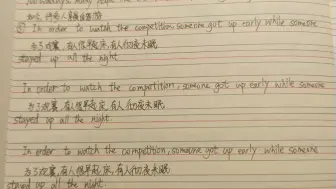 如今,许多人
① In order to watch the competition, someone got up early while someone
为了观赛,有人很早起床,有人彻夜未眠
stayed up all the night.
In order to watch the competition, someone got up early while someone
为了观赛,有人很早起床,有人彻夜未眠
stayed up all the night.
In order to watch the competition, someone got up early while someone
为了观赛,有人很早起床,有人彻夜未眠
stayed up all the night.